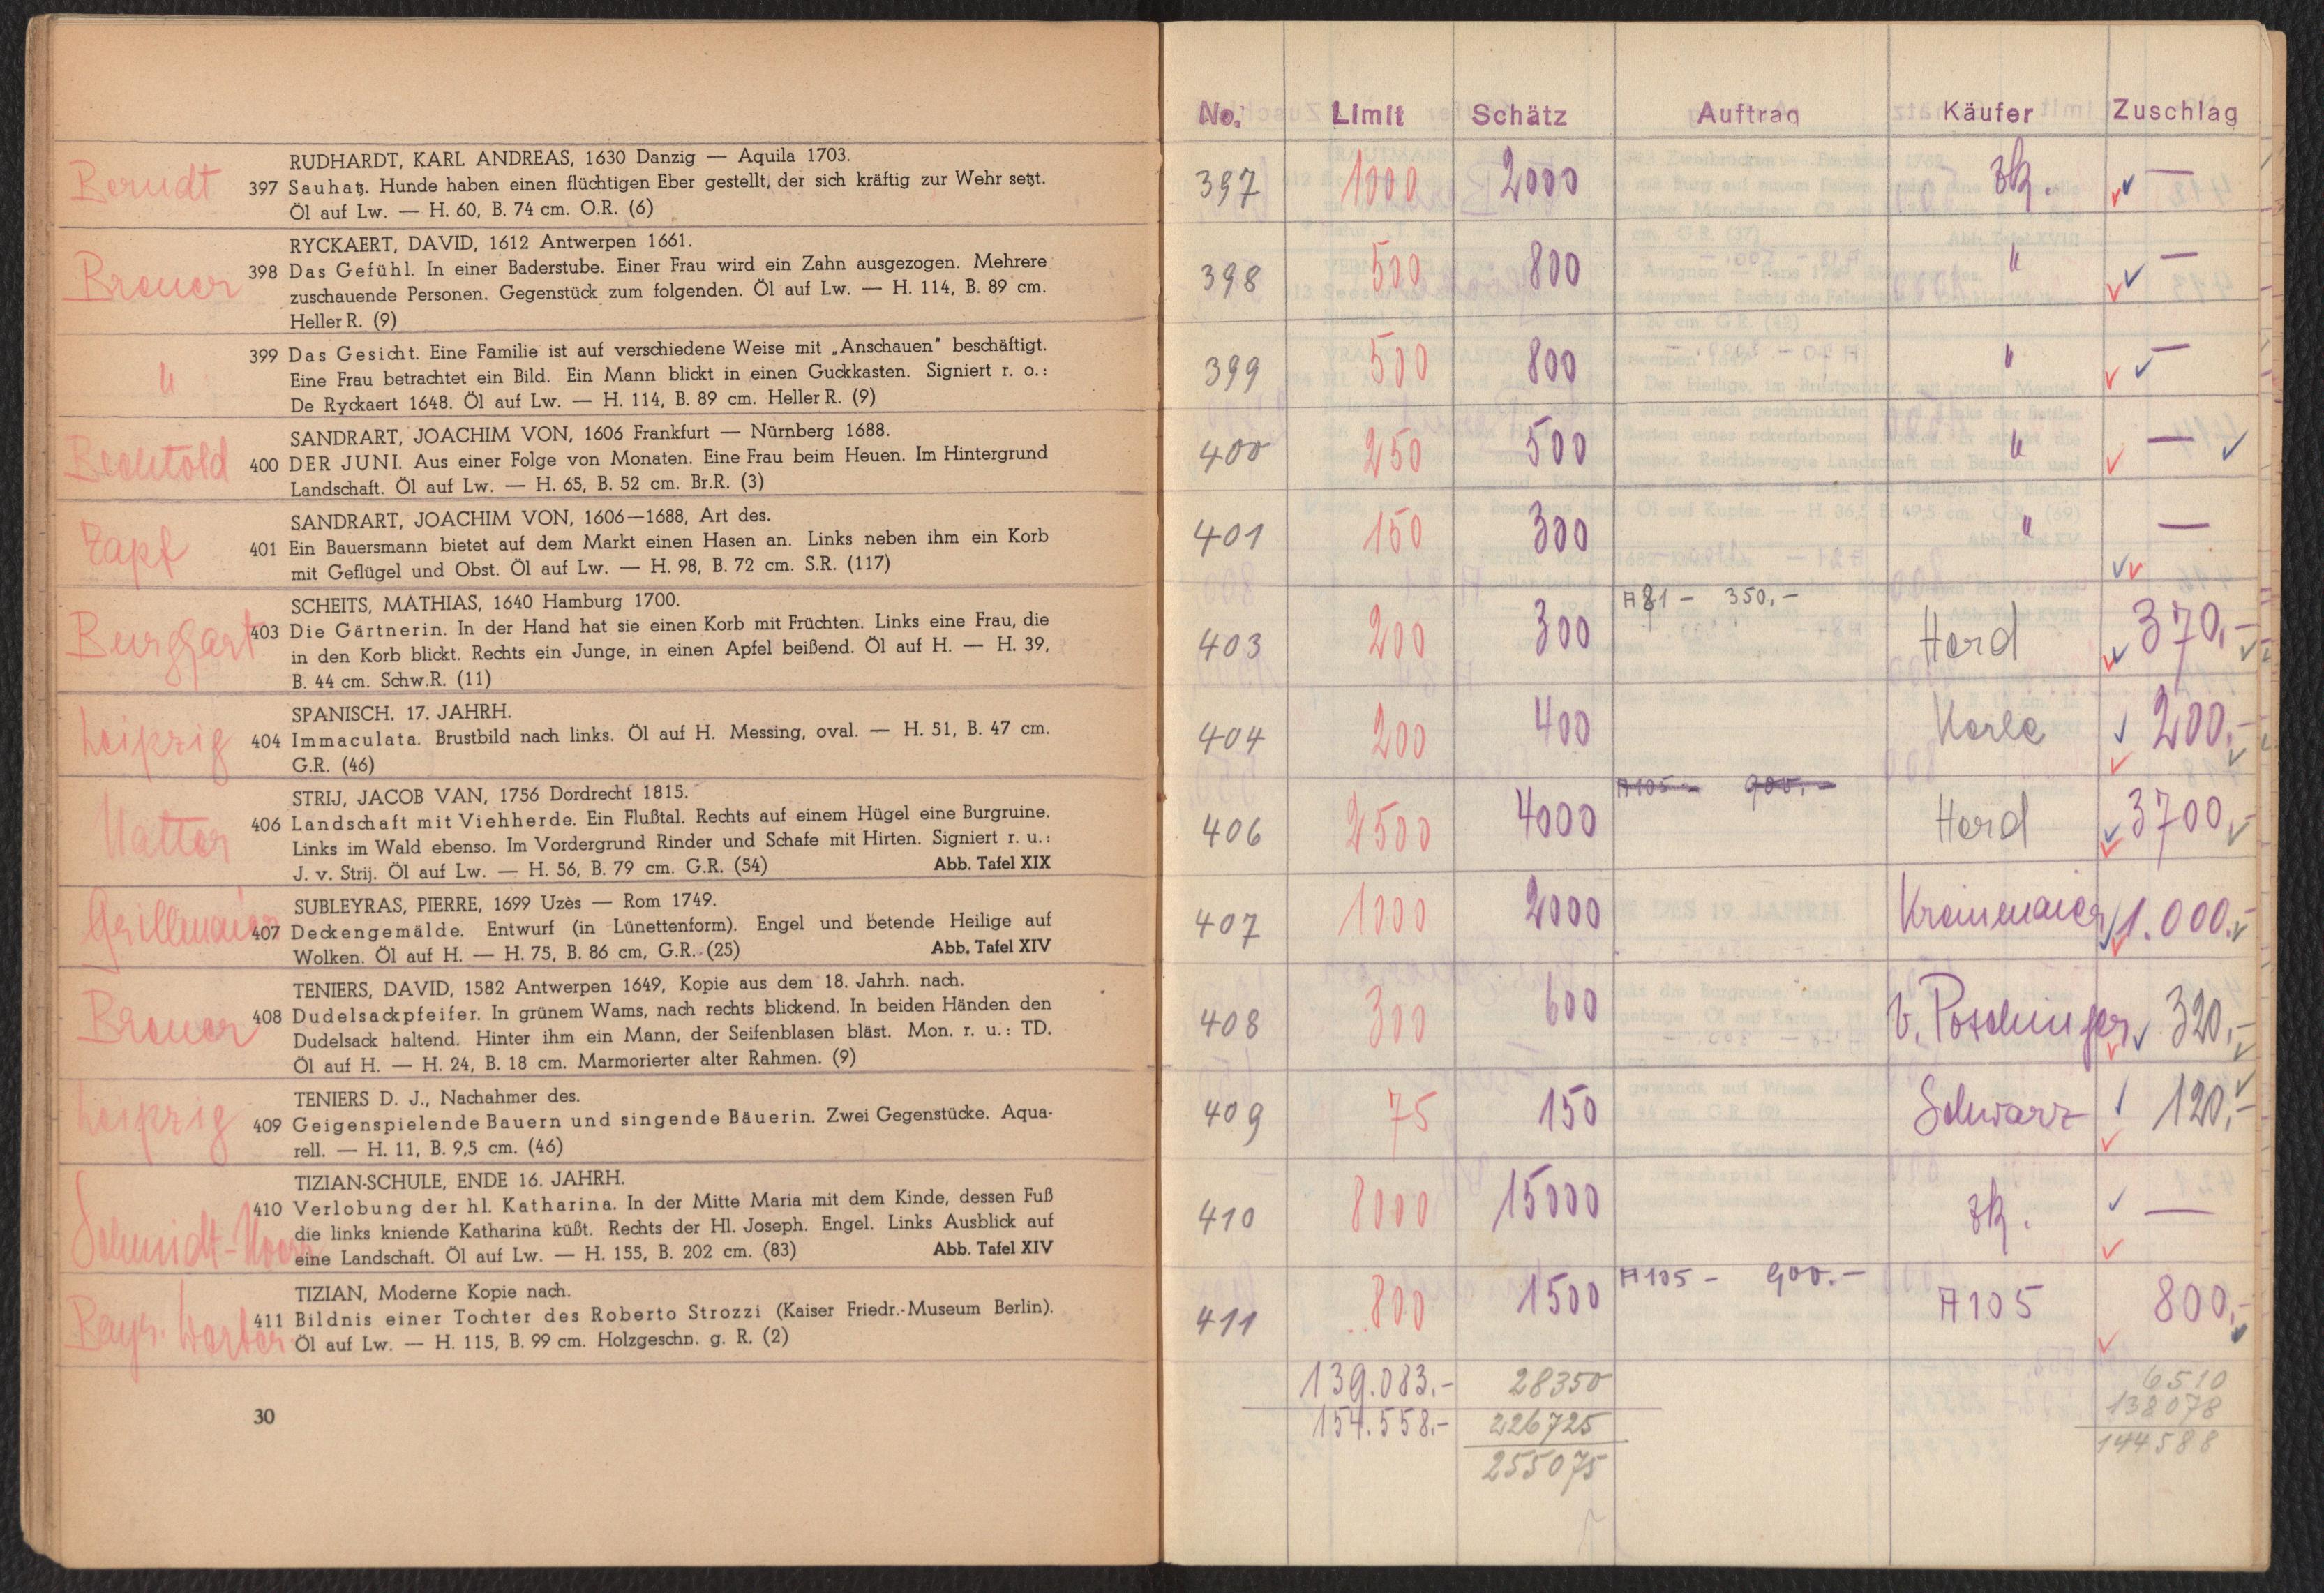 RUDHARDT, KARL ANDREAS, 1630 Danzig — Aquila 1703.
Berndt
397 Sauhatz. Hunde haben einen flüchtigen Eber gestellt, der sich kräftig zur Wehr setzt.
Öl auf Lw. — H. 60, B. 74 cm. O.R. (6)
RYCKAERT, DAVID, 1612 Antwerpen 1661.
Brener
398 Das Gefühl. In einer Baderstube. Einer Frau wird ein Zahn ausgezogen. Mehrere
zuschauende Personen. Gegenstück zum folgenden. Öl auf Lw. — H. 114, B. 89 cm.
Heller R. (9)
399 Das Gesicht. Eine Familie ist auf verschiedene Weise mit „Anschauen" beschäftigt.
"
Eine Frau betrachtet ein Bild. Ein Mann blickt in einen Guckkasten. Signiert r. o.:
De Ryckaert 1648. Öl auf Lw. — H. 114, B. 89 cm. Heller R. (9)
SANDRART, JOACHIM VON, 1606 Frankfurt — Nürnberg 1688.
Bechtold
400 DER JUNI. Aus einer Folge von Monaten. Eine Frau beim Heuen. Im Hintergrund
Landschaft. Öl auf Lw. — H. 65, B. 52 cm. Br.R. (3)
SANDRART, JOACHIM VON, 1606—1688, Art des.
Zapf
401 Ein Bauersmann bietet auf dem Markt einen Hasen an. Links neben ihm ein Korb
mit Geflügel und Obst. Öl auf Lw. — H. 98, B. 72 cm. S.R. (117)
SCHEITS, MATHIAS, 1640 Hamburg 1700.
Burghart
403 Die Gärtnerin. In der Hand hat sie einen Korb mit Früchten. Links eine Frau, die
in den Korb blickt. Rechts ein Junge, in einen Apfel beißend. Öl auf H. — H. 39,
B. 44 cm. Schw.R. (11)
SPANISCH. 17. JAHRH.
Leipzig
404 Immaculata. Brustbild nach links. Öl auf H. Messing, oval. — H. 51, B. 47 cm.
G.R. (46)
STRIJ, JACOB VAN, 1756 Dordrecht 1815.
406 Landschaft mit Viehherde. Ein Flußtal. Rechts auf einem Hügel eine Burgruine.
Links im Wald ebenso. Im Vordergrund Rinder und Schafe mit Hirten. Signiert r. u.:
J. v. Strij. Öl auf Lw. — H. 56, B. 79 cm. G.R. (54) Abb. Tafel XIX
SUBLEYRAS, PIERRE, 1699 Uzès — Rom 1749.
Grillmaier
407 Deckengemälde. Entwurf (in Lünettenform). Engel und betende Heilige auf
Wolken. Öl auf H. — H. 75, B. 86 cm, G.R. (25) Abb. Tafel XIV
TENIERS, DAVID, 1582 Antwerpen 1649, Kopie aus dem 18. Jahrh. nach.
Brener
408 Dudelsackpfeifer. In grünem Wams, nach rechts blickend. In beiden Händen den
Dudelsack haltend. Hinter ihm ein Mann, der Seifenblasen bläst. Mon. r. u.: TD.
Öl auf H. — H. 24, B. 18 cm. Marmorierter alter Rahmen. (9)
TENIERS D. J., Nachahmer des.
Leipzig
409 Geigenspielende Bauern und singende Bäuerin. Zwei Gegenstücke. Aqua-
rell. — H. 11, B. 9,5 cm. (46)
TIZIAN-SCHULE, ENDE 16. JAHRH.
410 Verlobung der hl. Katharina. In der Mitte Maria mit dem Kinde, dessen Fuß
Schmidt-
die links kniende Katharina küßt. Rechts der Hl. Joseph. Engel. Links Ausblick auf
eine Landschaft. Öl auf Lw. — H. 155, B. 202 cm. (83) Abb. Tafel XIV
TIZIAN, Moderne Kopie nach.
Bayr.
411 Bildnis einer Tochter des Roberto Strozzi (Kaiser Friedr.-Museum Berlin).
Öl auf Lw. — H. 115, B. 99 cm. Holzgeschn. g. R. (2)
30
No. Limit Schätz Auftrag Käufer Zuschlag
397 1000 2000 zk. —
398 500 800 " —
399 500 800 " —
400 250 500 " —
401 150 300 " —
403 200 300 A81 — 350,— Herd 370,—
404 200 400 Karle 200,—
406 2500 4000 A105 — 900.— Herd 3700,—
407 1000 2000 1.000.—
408 300 600 v. Poschinger 320,—
409 75 150 Schwarz 120,—
410 8000 15000 zk. —
411 800 1500 A105 — 900.— A105 800,—
139.083.— 28350 6510
154.558.— 226725 138078
255075 144588